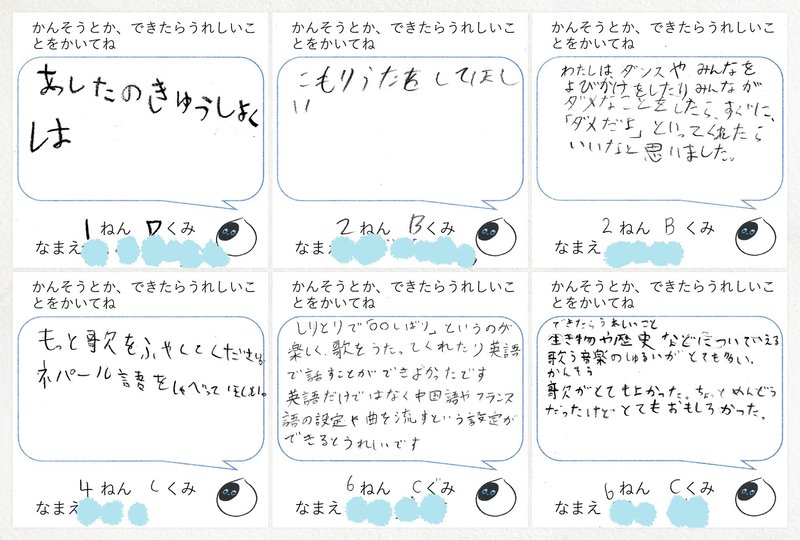 かんそうとか、できたらうれしいこ
とをかいてね
あしたのきゅうしょく
は
1ねん Dくみ
なまえ
かんそうとか、できたらうれしいこ
とをかいてね
こもりうたをしてほし
い
2ねん Bくみ
なまえ
かんそうとか、できたらうれしいこ
とをかいてね
わたしは ダンスや みんなを
よびかけをしたりみんなが
ダメなことをしたら、すぐに、
「ダメだよ」といってくれたら
いいなと思いました。
2ねん Bくみ
なまえ
かんそうとか、できたらうれしいこ
とをかいてね
もっと歌をふやしてください。
ネパール語をしゃべってほしい。
4ねん Cくみ
なまえ
かんそうとか、できたらうれしいこ
とをかいてね
しりとりで「〇〇しばり」というのが
楽しく、歌をうたってくれたり英語
で話すことができよかったです
英語だけではなく中国語やフランス
語の設定や曲を流すという設定が
できるとうれいです
6ねん Cぐみ
なまえ
かんそうとか、できたらうれしいこ
とをかいてね
できたらうれしいこと
生き物や歴史などについていえる
歌う音楽のしゅるいがとても多い。
かんそう
歌がとてもよかった。ちょっとめんどう
だったけどとてもおもしろかった。
6ねん Cくみ
なまえ